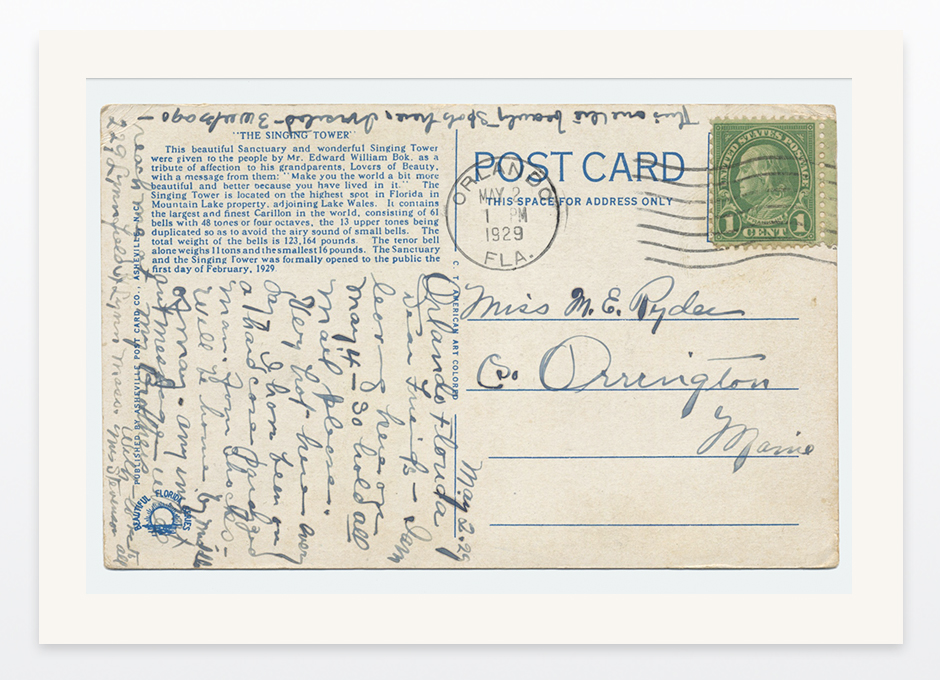 This one the beauty spots here, I visited 3 weeks ago -
"THE SINGING TOWER"
This beautiful Sanctuary and wonderful Singing Tower
were given to the people by Mr. Edward William Bok, as a
tribute of affection to his grandparents, Lovers of Beauty,
with a message from them: "Make you the world a bit more
beautiful and better because you have lived in it." The
Singing Tower is located on the highest spot in Florida in
Mountain Lake property, adjoining Lake Wales. It contains
the largest and finest Carillon in the world, consisting of 61
bells with 48 tones or four octaves, the 13 upper tones being
duplicated so as to avoid the airy sound of small bells. The
total weight of the bells is 123,164 pounds. The tenor bell
alone weighs 11 tons and the smallest 16 pounds. The Sanctuary
and the Singing Tower was formally opened to the public the
first day of February, 1929
POST CARD
THIS SPACE FOR ADDRESS ONLY
ORLANDO
MAY 2
1 PM
1929
FLA.
UNITED STATES POSTAGE
1 CENT 1
Miss M. E. Ryder
Co Orrington
Maine
May 2-29
Orlando Florida
Dear Friends - I am
leaving here on
May 4 - so hold all
mail please.
Very hot here - every
day. I have been on
a
man from
will be home by middle
of May - any
message
my Brothers
Lynn Mass.
C. T. AMERICAN ART COLORED
PUBLISHED BY ASHEVILLE POST CARD CO., ASHEVILLE, N. C.
BEAUTIFUL FLORIDA SERIES